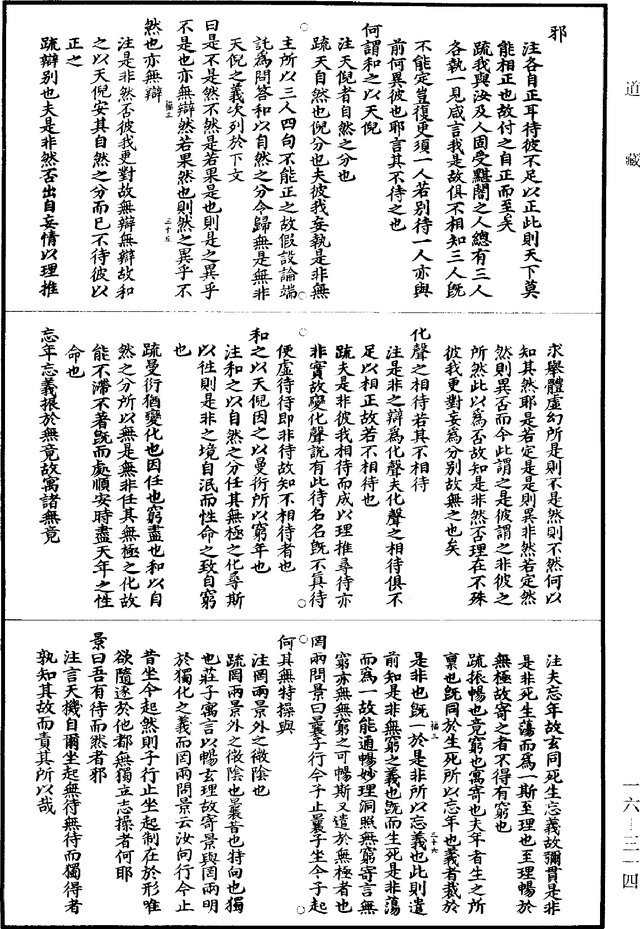 道藏
一六—三一四
邪
注各自正耳待彼不足以正此則天下莫
能相正也故付之自正而至矣
疏我與汝及人固受黮闇之人總有三人
各執一見咸言我是故俱不相知三人既
不能定豈復更須一人若別待一人亦與
前何異彼也耶言其不待之也
何謂和之以天倪
注天倪者自然之分也
疏天自然也倪分也夫彼我妄執是非無
主所以三人四句不能正之故假設論端
託為問答和以自然之分令歸無是無非
天倪之義次列於下文
曰是不是然不然是若果是也則是之異乎
不是也亦無辯然若果然也則然之異乎不
然也亦無辯
福三
三十五
注是非然否彼我更對故無辯無辯故和
之以天倪安其自然之分而已不待彼以
正之
疏辯別也夫是非然否出自妄情以理推
求舉體虛幻所是則不是然則不然何以
知其然耶是若定是是則異非然若定然
然則異否而今此謂之是彼謂之非彼之
所然此以為否故知是非然否理在不殊
彼我更對妄為分別故無之也矣
化聲之相待若其不相待
注是非之辯為化聲夫化聲之相待俱不
足以相正故若不相待也
疏夫是非彼我相待而成以理推尋待亦
非實故變化聲說有此待名名既不真待
便虛待待即非待故知不相待者也
和之以天倪因之以曼衍所以窮年也
注和之以自然之分任其無極之化尋斯
以往則是非之境自泯而性命之致自窮
也
疏曼衍猶變化也因任也窮盡也和以自
然之分所以無是無非任其無極之化故
能不滯不著既而處順安時盡天年之性
命也
忘年忘義振於無竟故寓諸無竟
注夫忘年故玄同死生忘義故彌貫是非
是非死生蕩而為一斯至理也至理暢於
無極故寄之者不得有窮也
疏振暢也竟窮也寓寄也夫年者生之所
稟也既同於生死所以忘年也義者裁於
是非也既一於是非所以忘義也此則遣
福三
三十六
前知是非無窮之義也既而生死是非蕩
而為一故能通暢妙理洞照無窮寄言無
窮亦無無窮之可暢斯又遣於無極者也
罔兩問景曰曩子行今子止曩子坐今子起
何其無特操與
注罔兩景外之微陰也
疏罔兩景外之微陰也曩昔也特向也獨
也莊子寓言以暢玄理故寄景與罔兩明
於獨化之義而罔兩問景云汝向行今止
昔坐今起然則子行止坐起制在於形唯
欲隨逐於他都無獨立志操者何耶
景曰吾有待而然者邪
注言天機自爾坐起無待無待而獨得者
孰知其故而責其所以哉